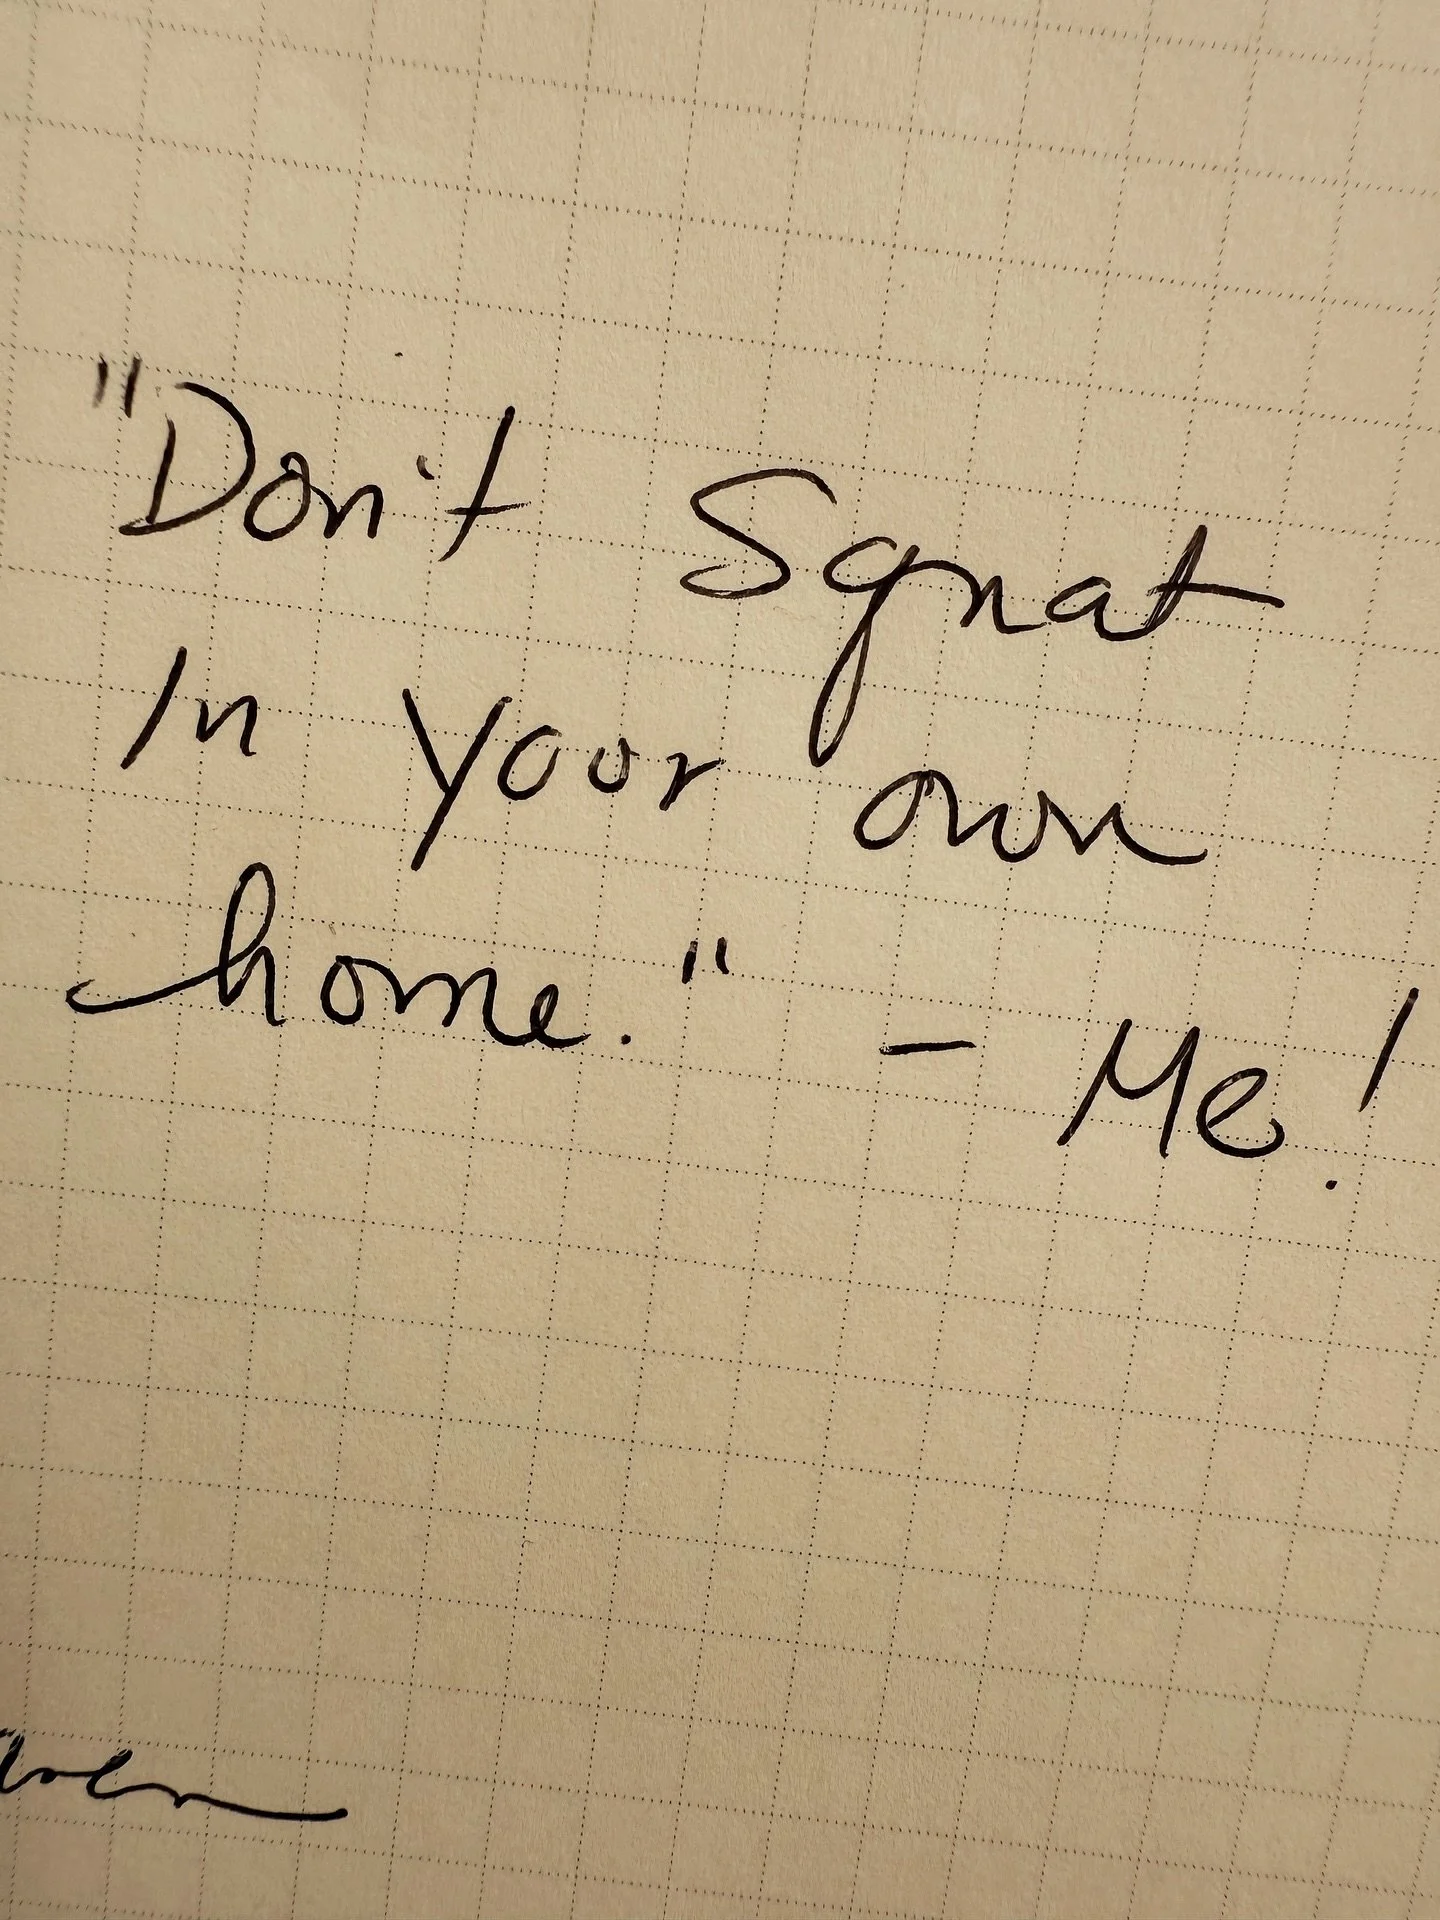 "Don't Squat
In your own
home." - Me!